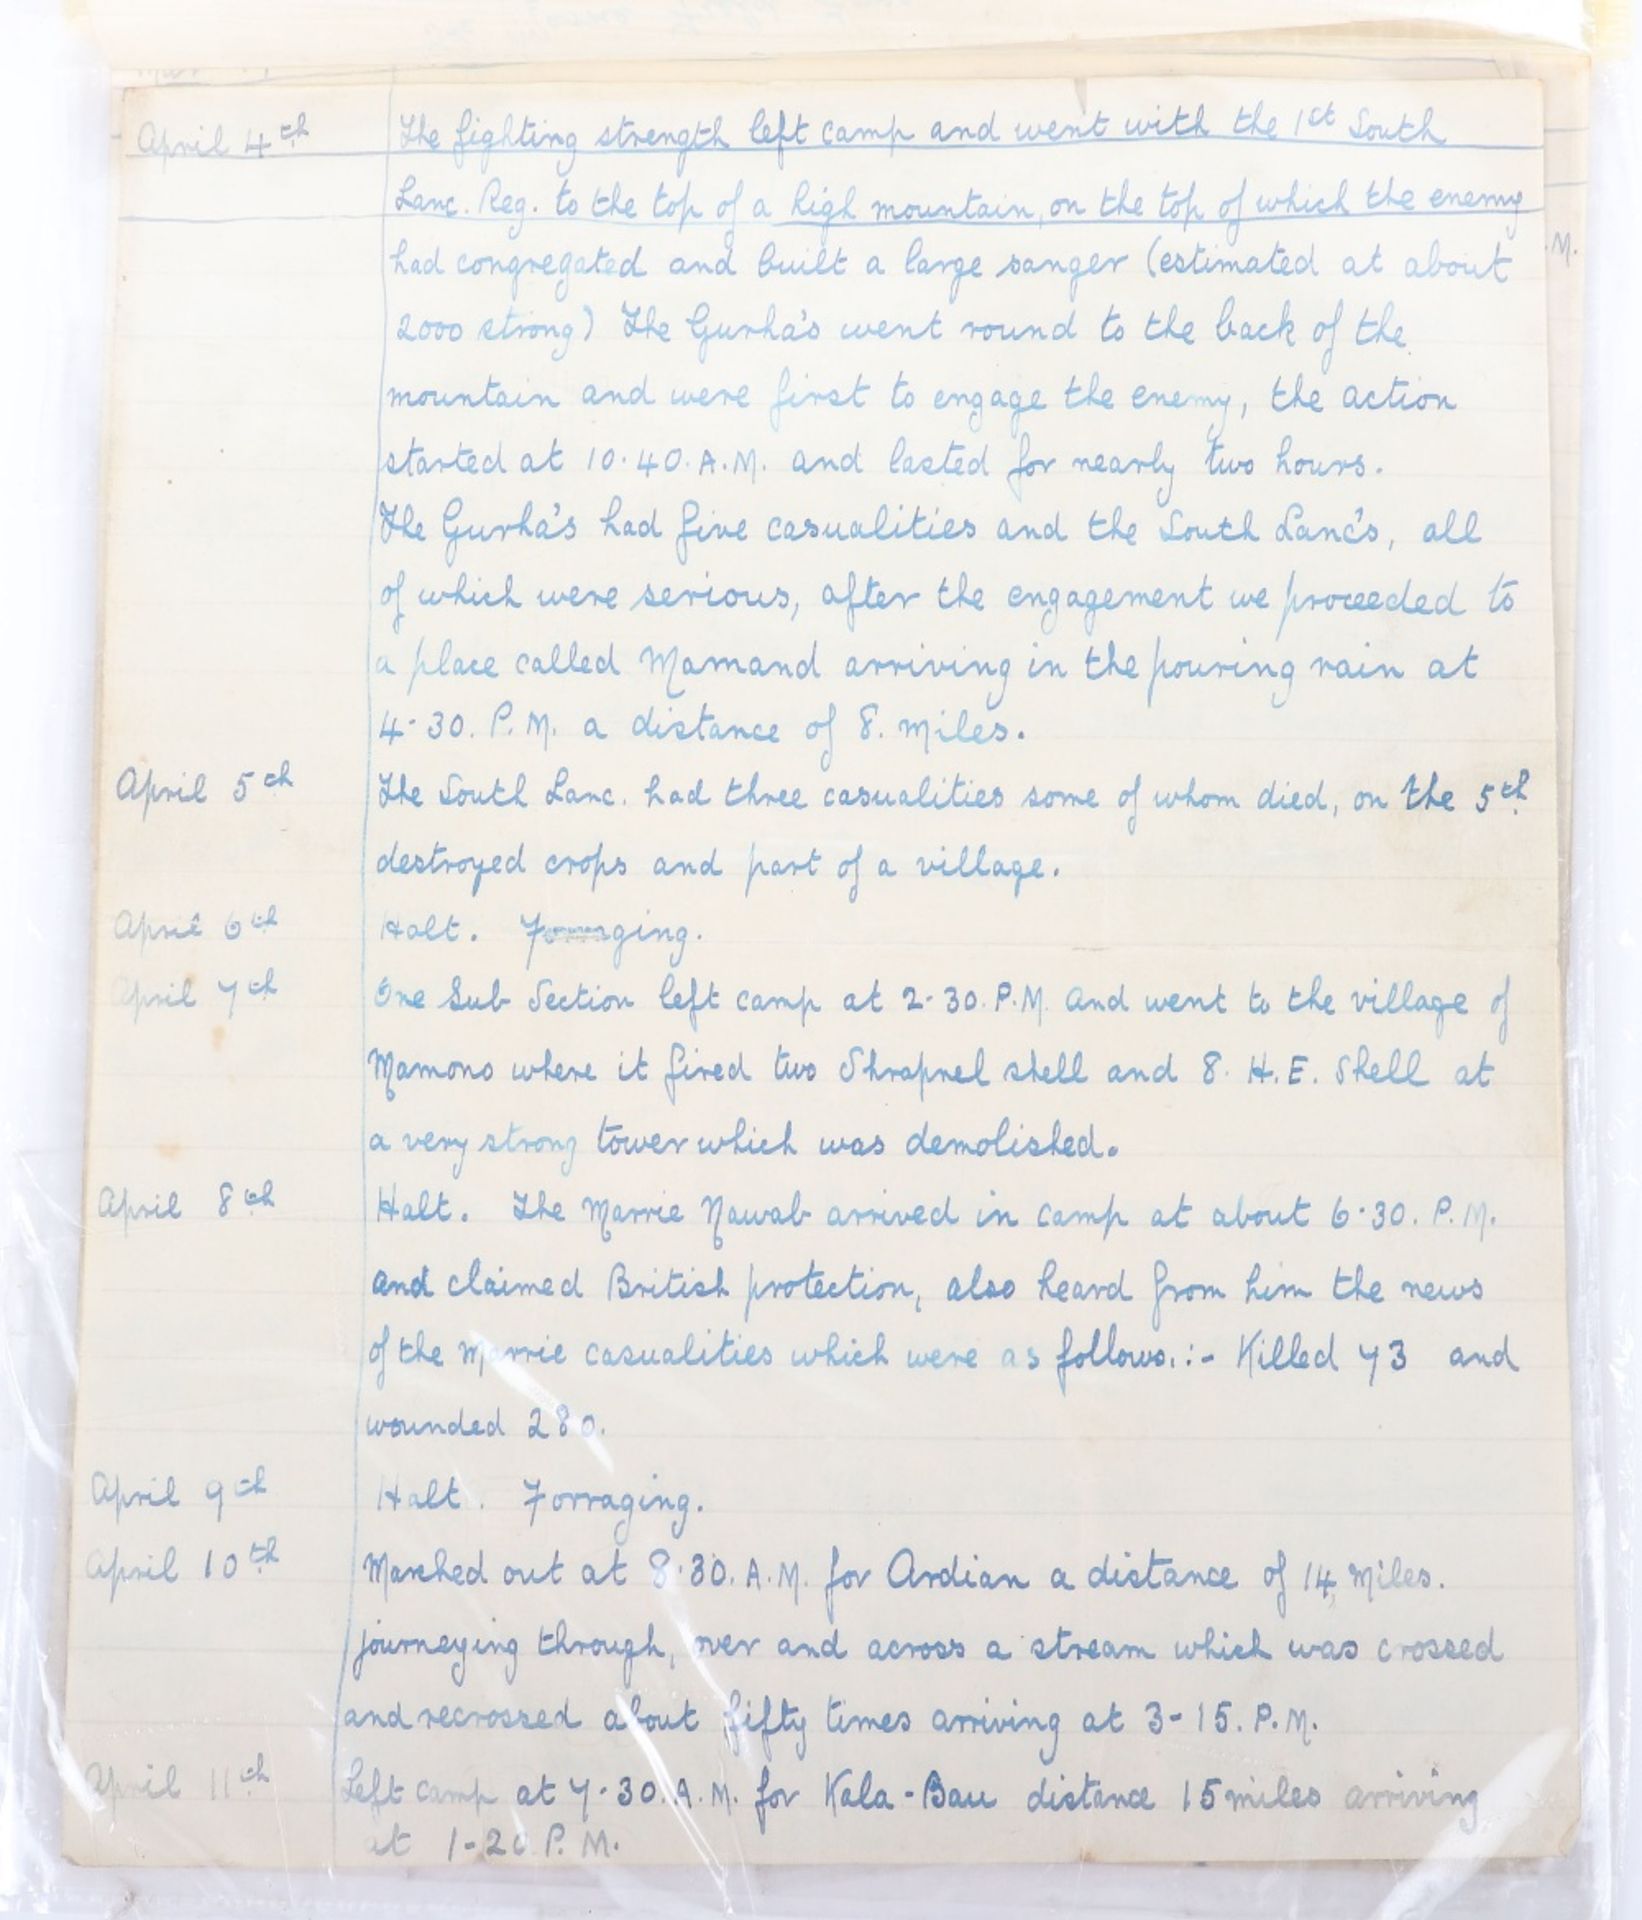 April 4th The fighting strength left camp and went with the 1st South
Lanc. Reg. to the top of a high mountain, on the top of which the enemy
had congregated and built a large sanger (estimated at about
M.
2000 strong) The Gurha's went round to the back of the
mountain and were first to engage the enemy, the action
started at 10.40. A.M. and lasted for nearly two hours.
The Gurha's had five casualities and the South Lanc's, all
of which were serious, after the engagement we proceeded to
a place called Mamand arriving in the pouring rain at
4-30. P.M. a distance of 8. miles.
April 5th The South Lanc. had three casualities some of whom died, on the 5th
destroyed crops and part of a village.
April 6th Halt. Forraging.
April 7th One Sub Section left camp at 2-30. P.M. and went to the village of
Mamono where it fired two Shrapnel shell and 8. H.E. Shell at
a very strong tower which was demolished.
April 8th Halt. The Marrie Nawab arrived in camp at about 6.30. P.M.
and claimed British protection, also heard from him the news
of the Marrie casualities which were as follows.:- Killed 73 and
wounded 280.
April 9th Halt. Forraging.
April 10th Marched out at 8.30. A.M. for Ardian a distance of 14 miles.
journeying through, over and across a stream which was crossed
and recrossed about fifty times arriving at 3-15. P.M.
April 11th Left camp at 7-30. A.M. for Kala-Bau distance 15 miles arriving
at 1-20 P.M.